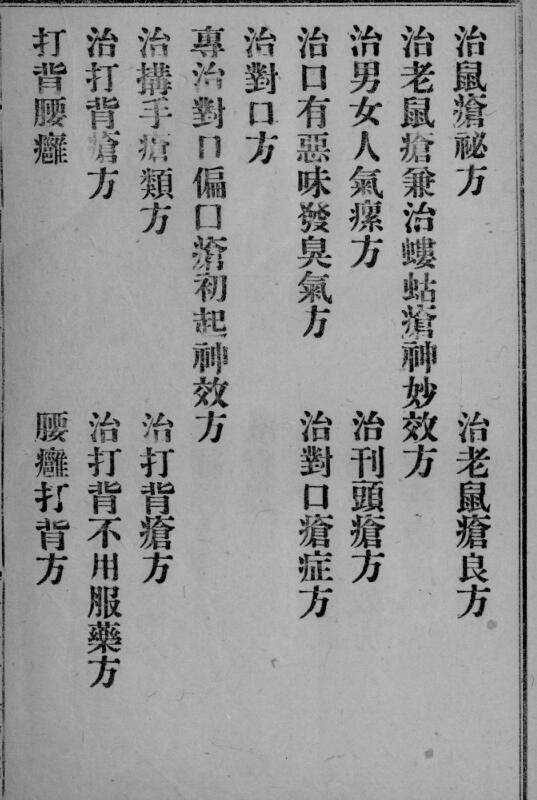 治鼠瘡祕方　治老鼠瘡良方
治老鼠瘡兼治螻蛄瘡神妙效方
治男女人氣瘰方　治刊頭瘡方
治口有惡味發臭氣方　治對口瘡症方
治對口方
專治對口偏口瘡初起神效方
治搆手瘡類方　治打背瘡方
治打背瘡方　治打背不用服藥方
打背腰癰　腰癰打背方